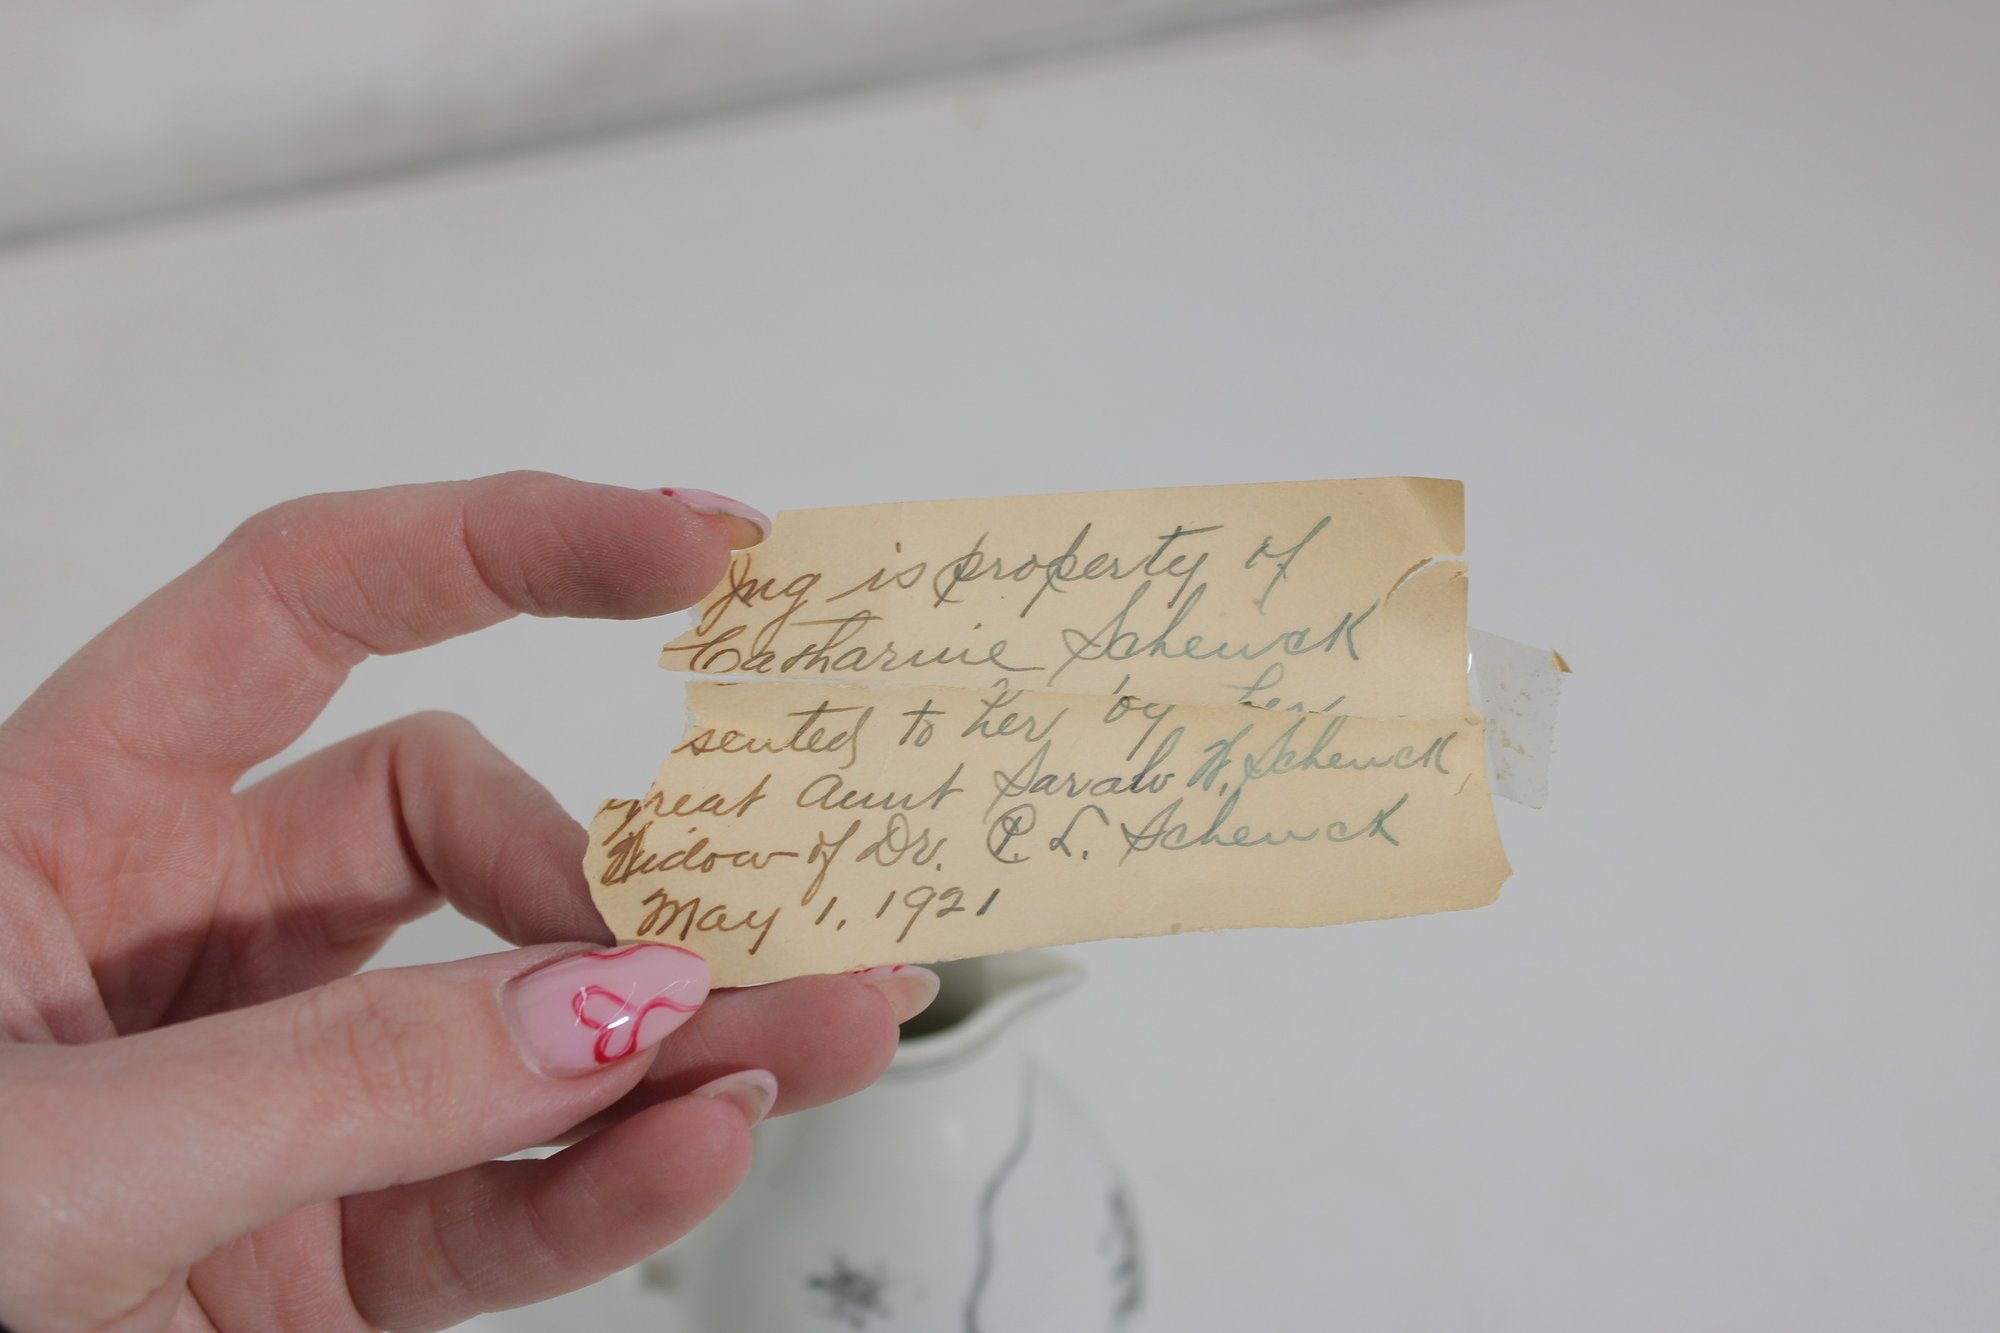 Jug is property of
Catharine Schenck
sented to her by her
great Aunt Sarah H. Schenck,
Widow of Dr. P. L. Schenck
May 1, 1921